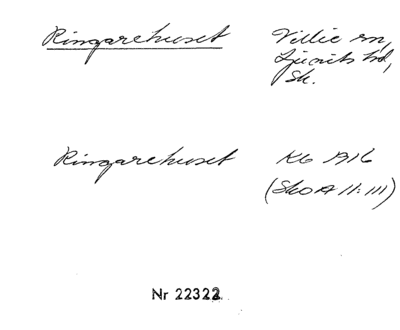 Ringarehuset Villie sn,
Ljunits hd,
Sk.
Ringarehuset KB 1916
(SkOA 11:111)
Nr 22322